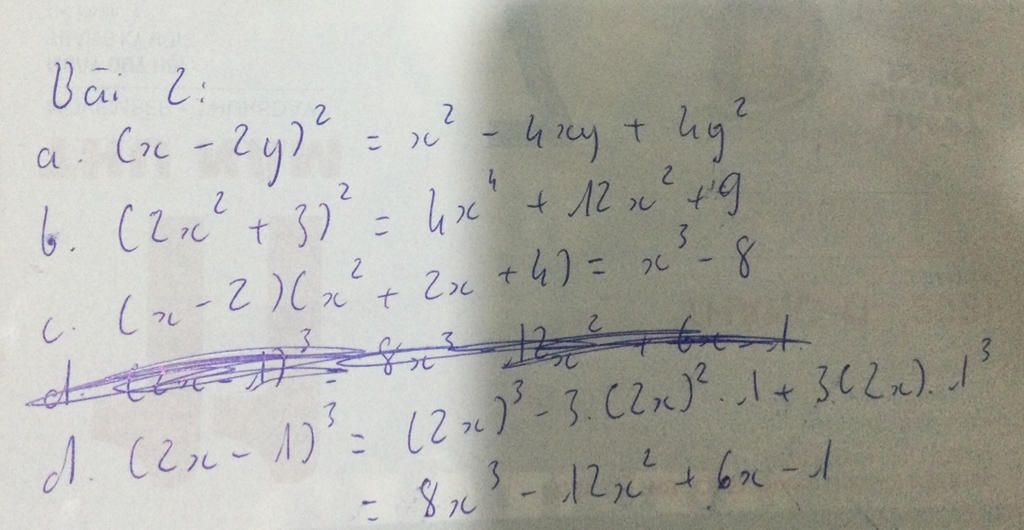 Bài 2:
a. (x - 2y)² = x² - 4xy + 4y²
b. (2x² + 3)² = 4x⁴ + 12x² + 9
c. (x - 2)(x² + 2x + 4) = x³ - 8
d. (2x - 1)³ = 8x³ 12x² + 6x - 1
d. (2x - 1)³ = (2x)³ - 3.(2x)².1 + 3(2x).1³
= 8x³ - 12x² + 6x - 1